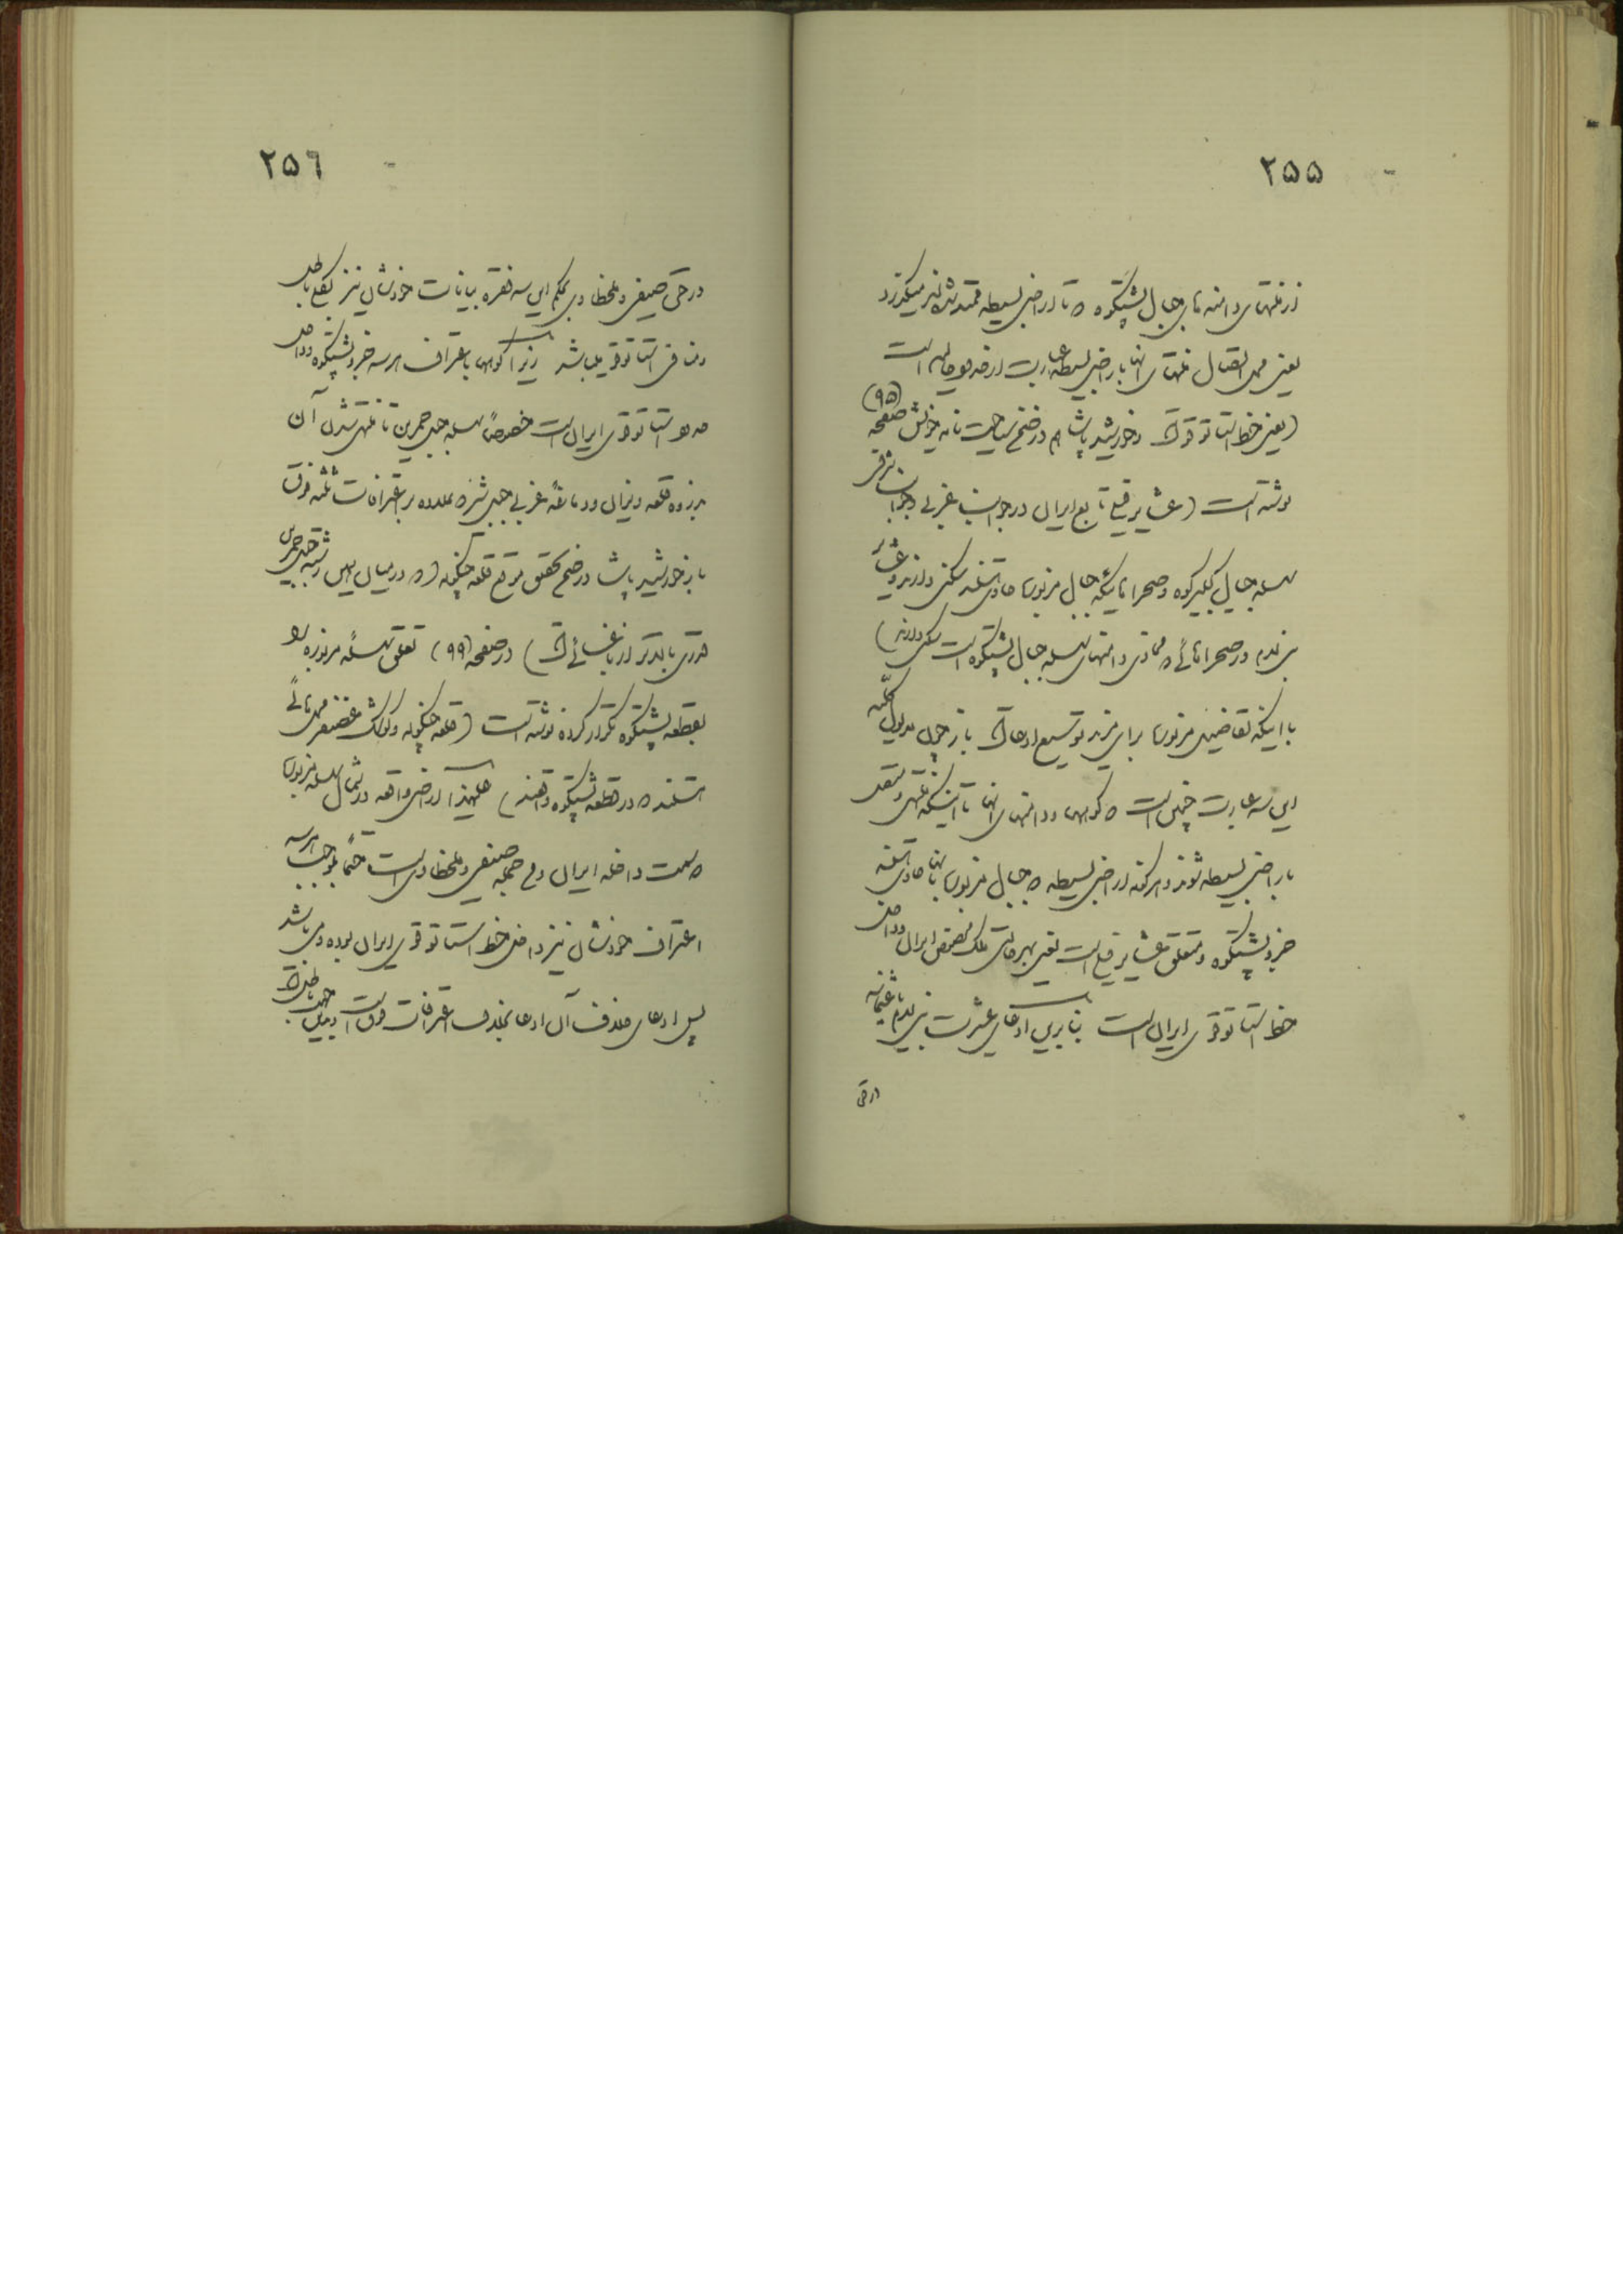 ۲۵۵
از منتهای دامنه های جبال پشتکوه که تا اراضی بسیطه ممتد شده اند میگذرد
یعنی محل اتصال منتهای آنها باراضی بسیطه عبارت از حدود حالیه است
(یعنی خط استاتوقو است) و خورشید پاشا هم در ضمن سیاحت نامه خودش صفحه (۹۵)
نوشته است (عشایر فیلی تابع ایران در جوانب غربی و جوانب شرقی
سلسله جبال کبیرکوه و صحراهائیکه جبال مزبوره حاوی هستند سکنی دارند و عشایر
بنی لام در صحراهائی که محاذی و انتهای سلسله جبال پشتکوه است سکنی دارند)
با اینکه تقاضیش مزبوره برای مزید توسیع ادعا است باز چون مدلول کلیه
این سه عبارت چنین است که کوهها و دامنهای آنها تا آنیکه منتهی و متصل
باراضی بسیطه شوند و هر گونه اراضی بسیطه که جبال مزبوره بآنها حاوی هستند
جزو پشتکوه و متعلق عشایر فیلی است یعنی بهر حالت ملک مختص ایران و داخل
خط استاتوقوی ایران است بنابرین ادعای عشیرت بنی لام عثمانیه
در حق
۲۵۶
در حق صیفی و ملخطاوی بحکم این سه فقره بیانات خودشان نیز بکلی باطل
و منافی استاتوقو میباشد زیرا کوهها باعتراف هر سه جزو پشتکوه و داخل
حدود استاتوقوی ایران است خصوصاً سلسله جبل حمرین تا منتهی شدن آن
در نزد قلعه ویزان و دماغهٔ غربی جبل شیره علاوه بر اعترافات ثلثه فوق
باز خورشید پاشا در ضمن تحقیق موقع قلعه چنگوله (که در میان این رشته جبل حمرین
در صفحه (۹۹) تعلق سلسله مزبوره را
بقطعه پشتکوه تکرار کرده نوشته است (قلعه چنگوله و کولک غضنفر محل هائی
هستند که در قطعه پشتکوه واقعند) علیهذا اراضی واقعه در شمال سلسله مزبوره
که سمت داخله ایران و من جمله صیفی و ملخطاوی است حتماً بموجب هر سه
اعتراف خودشان نیز داخل خط استاتوقوی ایران بوده و می باشد
پس ادعای خلاف آن ادعا بخلاف اعترافات فوق است و بهمین جهت باطل است